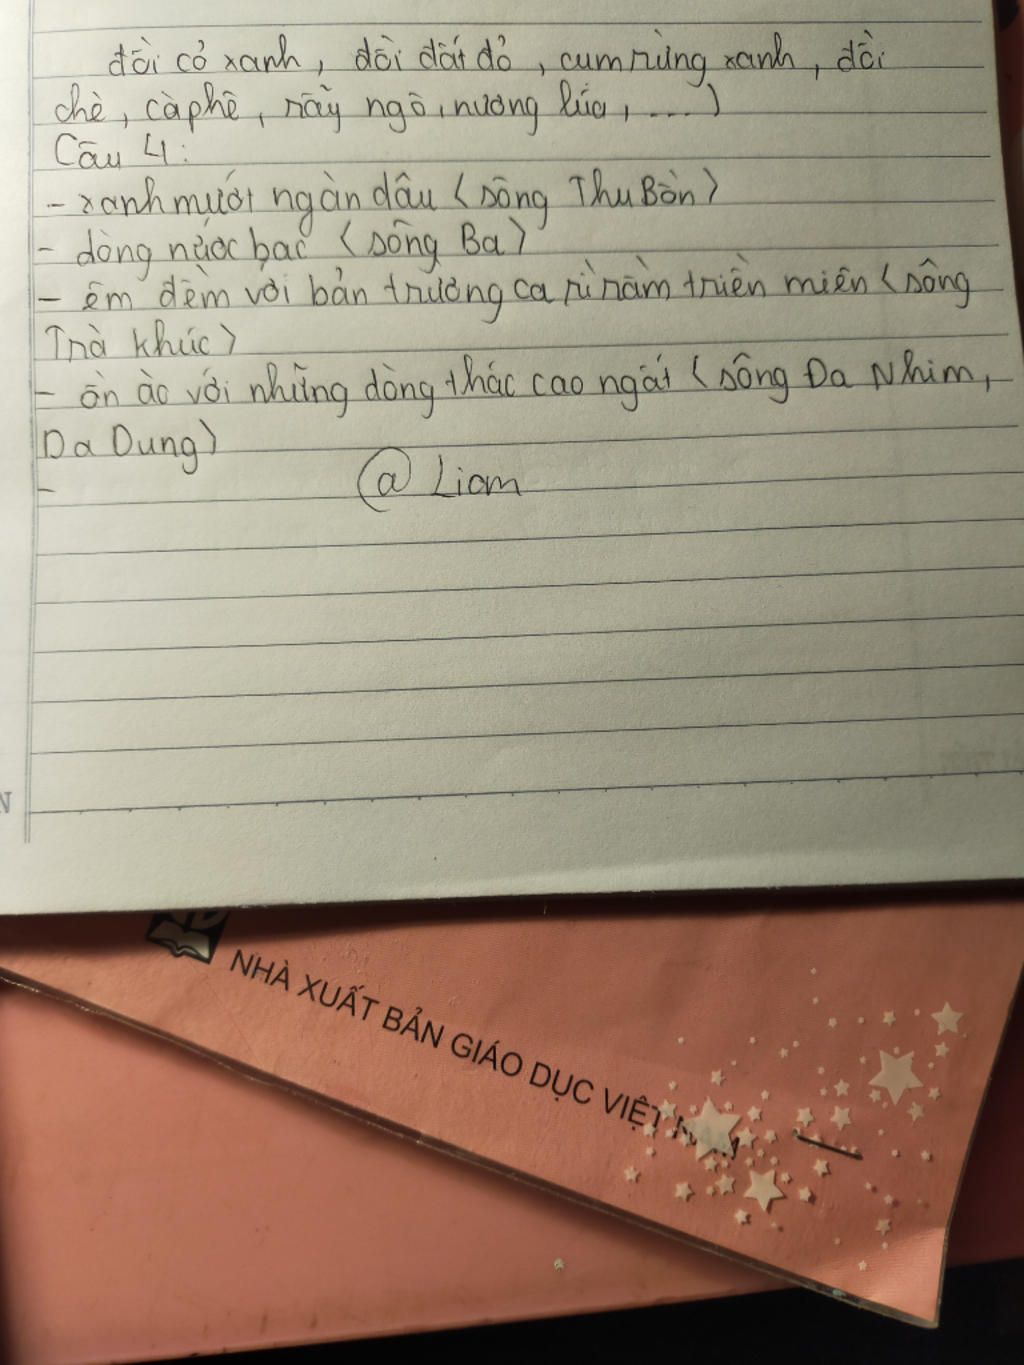 đồi cỏ xanh, đồi đất đỏ, cụm rừng xanh, đồi
chè, cà phê, rẫy ngô, nương lúa, ....)
Câu 4:
- xanh mướt ngàn dâu (sông Thu Bồn)
- dòng nước bạc (sông Ba)
- êm đềm với bản trường ca rì rầm triền miên (sông
Trà Khúc)
- ồn ào với những dòng thác cao ngất (sông Đa Nhim,
Đa Dung)
-
@ Liam
NHÀ XUẤT BẢN GIÁO DỤC VIỆT NAM